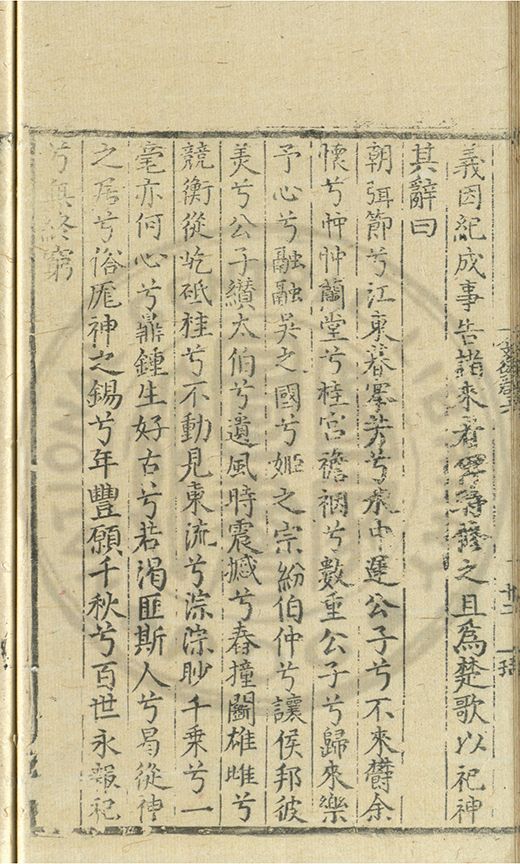 義因紀成事告諸來者
之且為楚歌以祀神
其辭曰
朝弭節兮江東暮搴芳兮水中蹇公子兮不來鬱余
懷兮忡忡蘭堂兮桂宮襜裀兮數重公子兮歸來樂
予心兮融融吳之國兮姬之宗紛伯仲兮讓侯邦彼
美兮公子纘太伯兮遺風時震撼兮舂撞鬭雄雌兮
競衡從屹砥柱兮不動見東流兮淙淙眇千乘兮一
毫亦何心兮鼎鍾生好古兮若渴匪斯人兮曷從神
之居兮俗厖神之錫兮年豐願千秋兮百世永報祀
兮無終窮